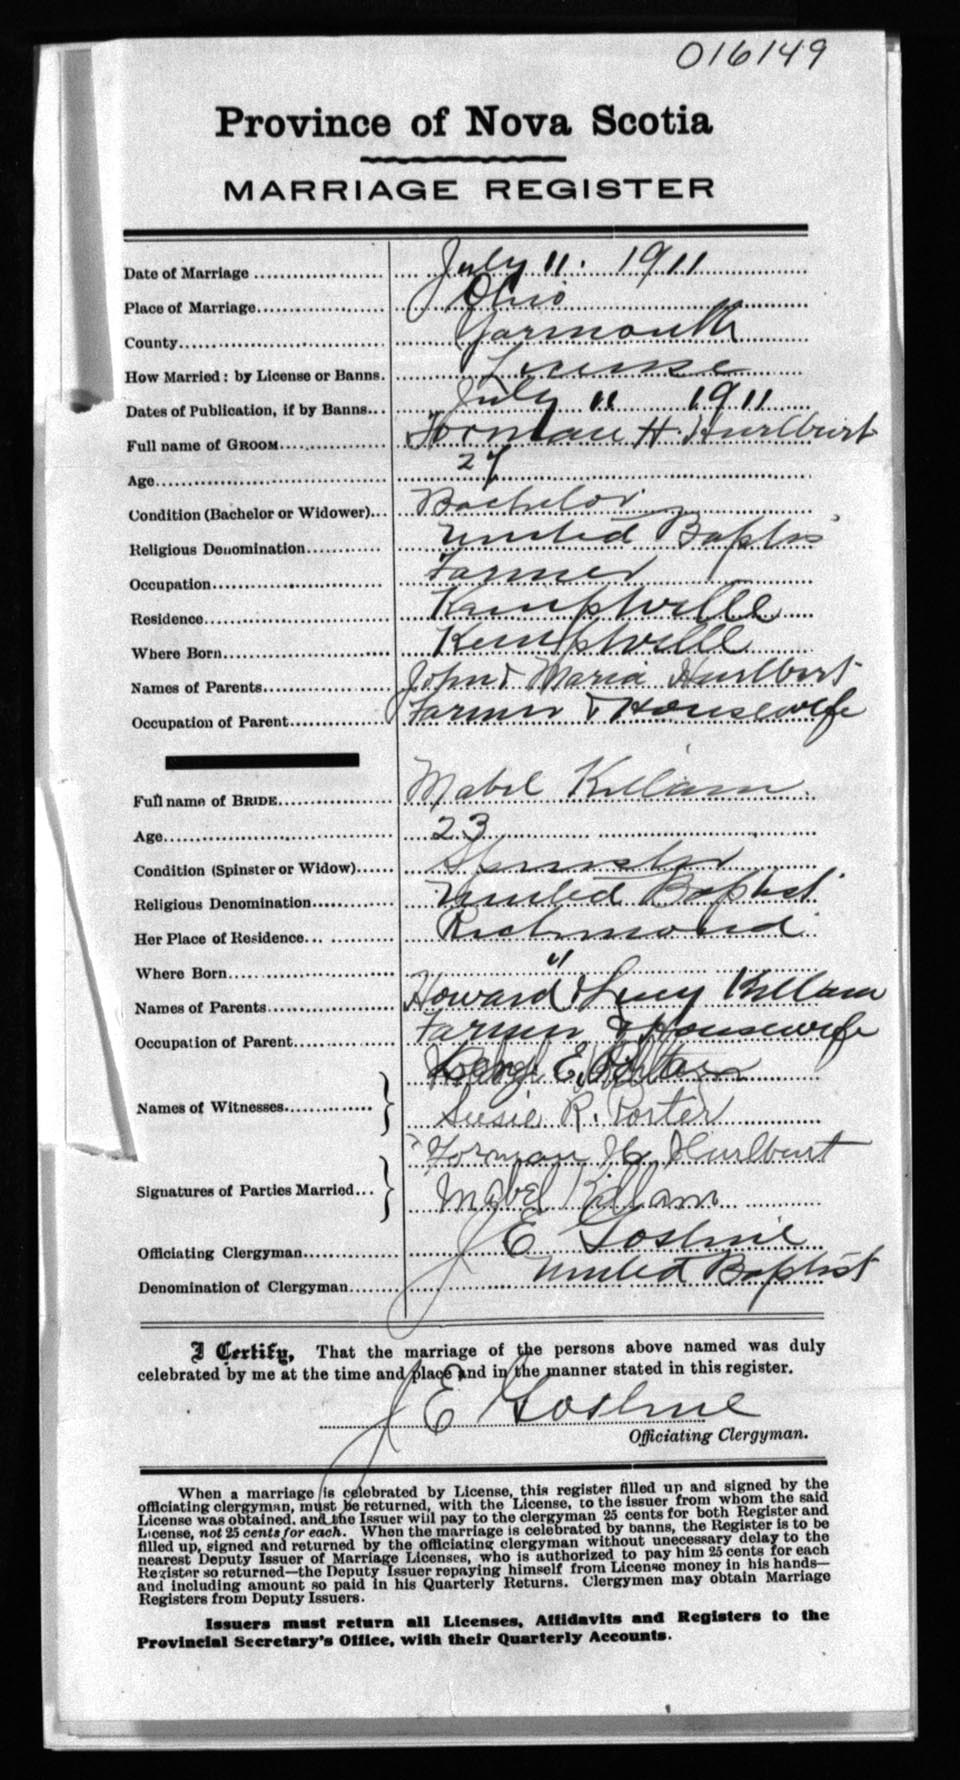 016149
Province of Nova Scotia
MARRIAGE REGISTER
Date of Marriage July 11. 1911
Place of Marriage Ohio
County Yarmouth
How Married: by License or Banns. License
Dates of Publication, if by Banns July 11 1911
Full name of GROOM Forman H. Hurlburt
Age 27
Condition (Bachelor or Widower) Bachelor
Religious Denomination United Baptis
Occupation Farmer
Residence Kemptville
Where Born Kemptville
Names of Parents John & Maria Hurlburt
Occupation of Parent Farmer & Housewife
Full name of BRIDE Mabel Killam
Age 23
Condition (Spinster or Widow) Spinster
Religious Denomination United Baptist
Her Place of Residence Richmond
Where Born "
Names of Parents Howard & Lucy Killam
Occupation of Parent Farmer & Housewife
E.
Names of Witnesses
Susie R. Porter
Forman H. Hurlburt
Signatures of Parties Married Mabel Killam
Officiating Clergyman J E Gosline
Denomination of Clergyman United Baptist
I Certify, That the marriage of the persons above named was duly
celebrated by me at the time and place and in the manner stated in this register.
J E Gosline
Officiating Clergyman.
When a marriage is celebrated by License, this register filled up and signed by the
officiating clergyman, must be returned, with the License, to the issuer from whom the said
License was obtained, and the Issuer will pay to the clergyman 25 cents for both Register and
License, not 25 cents for each. When the marriage is celebrated by banns, the Register is to be
filled up, signed and returned by the officiating clergyman without unecessary delay to the
nearest Deputy Issuer of Marriage Licenses, who is authorized to pay him 25 cents for each
Register so returned—the Deputy Issuer repaying himself from License money in his hands—
and including amount so paid in his Quarterly Returns. Clergymen may obtain Marriage
Registers from Deputy Issuers.
Issuers must return all Licenses, Affidavits and Registers to the
Provincial Secretary's Office, with their Quarterly Accounts.